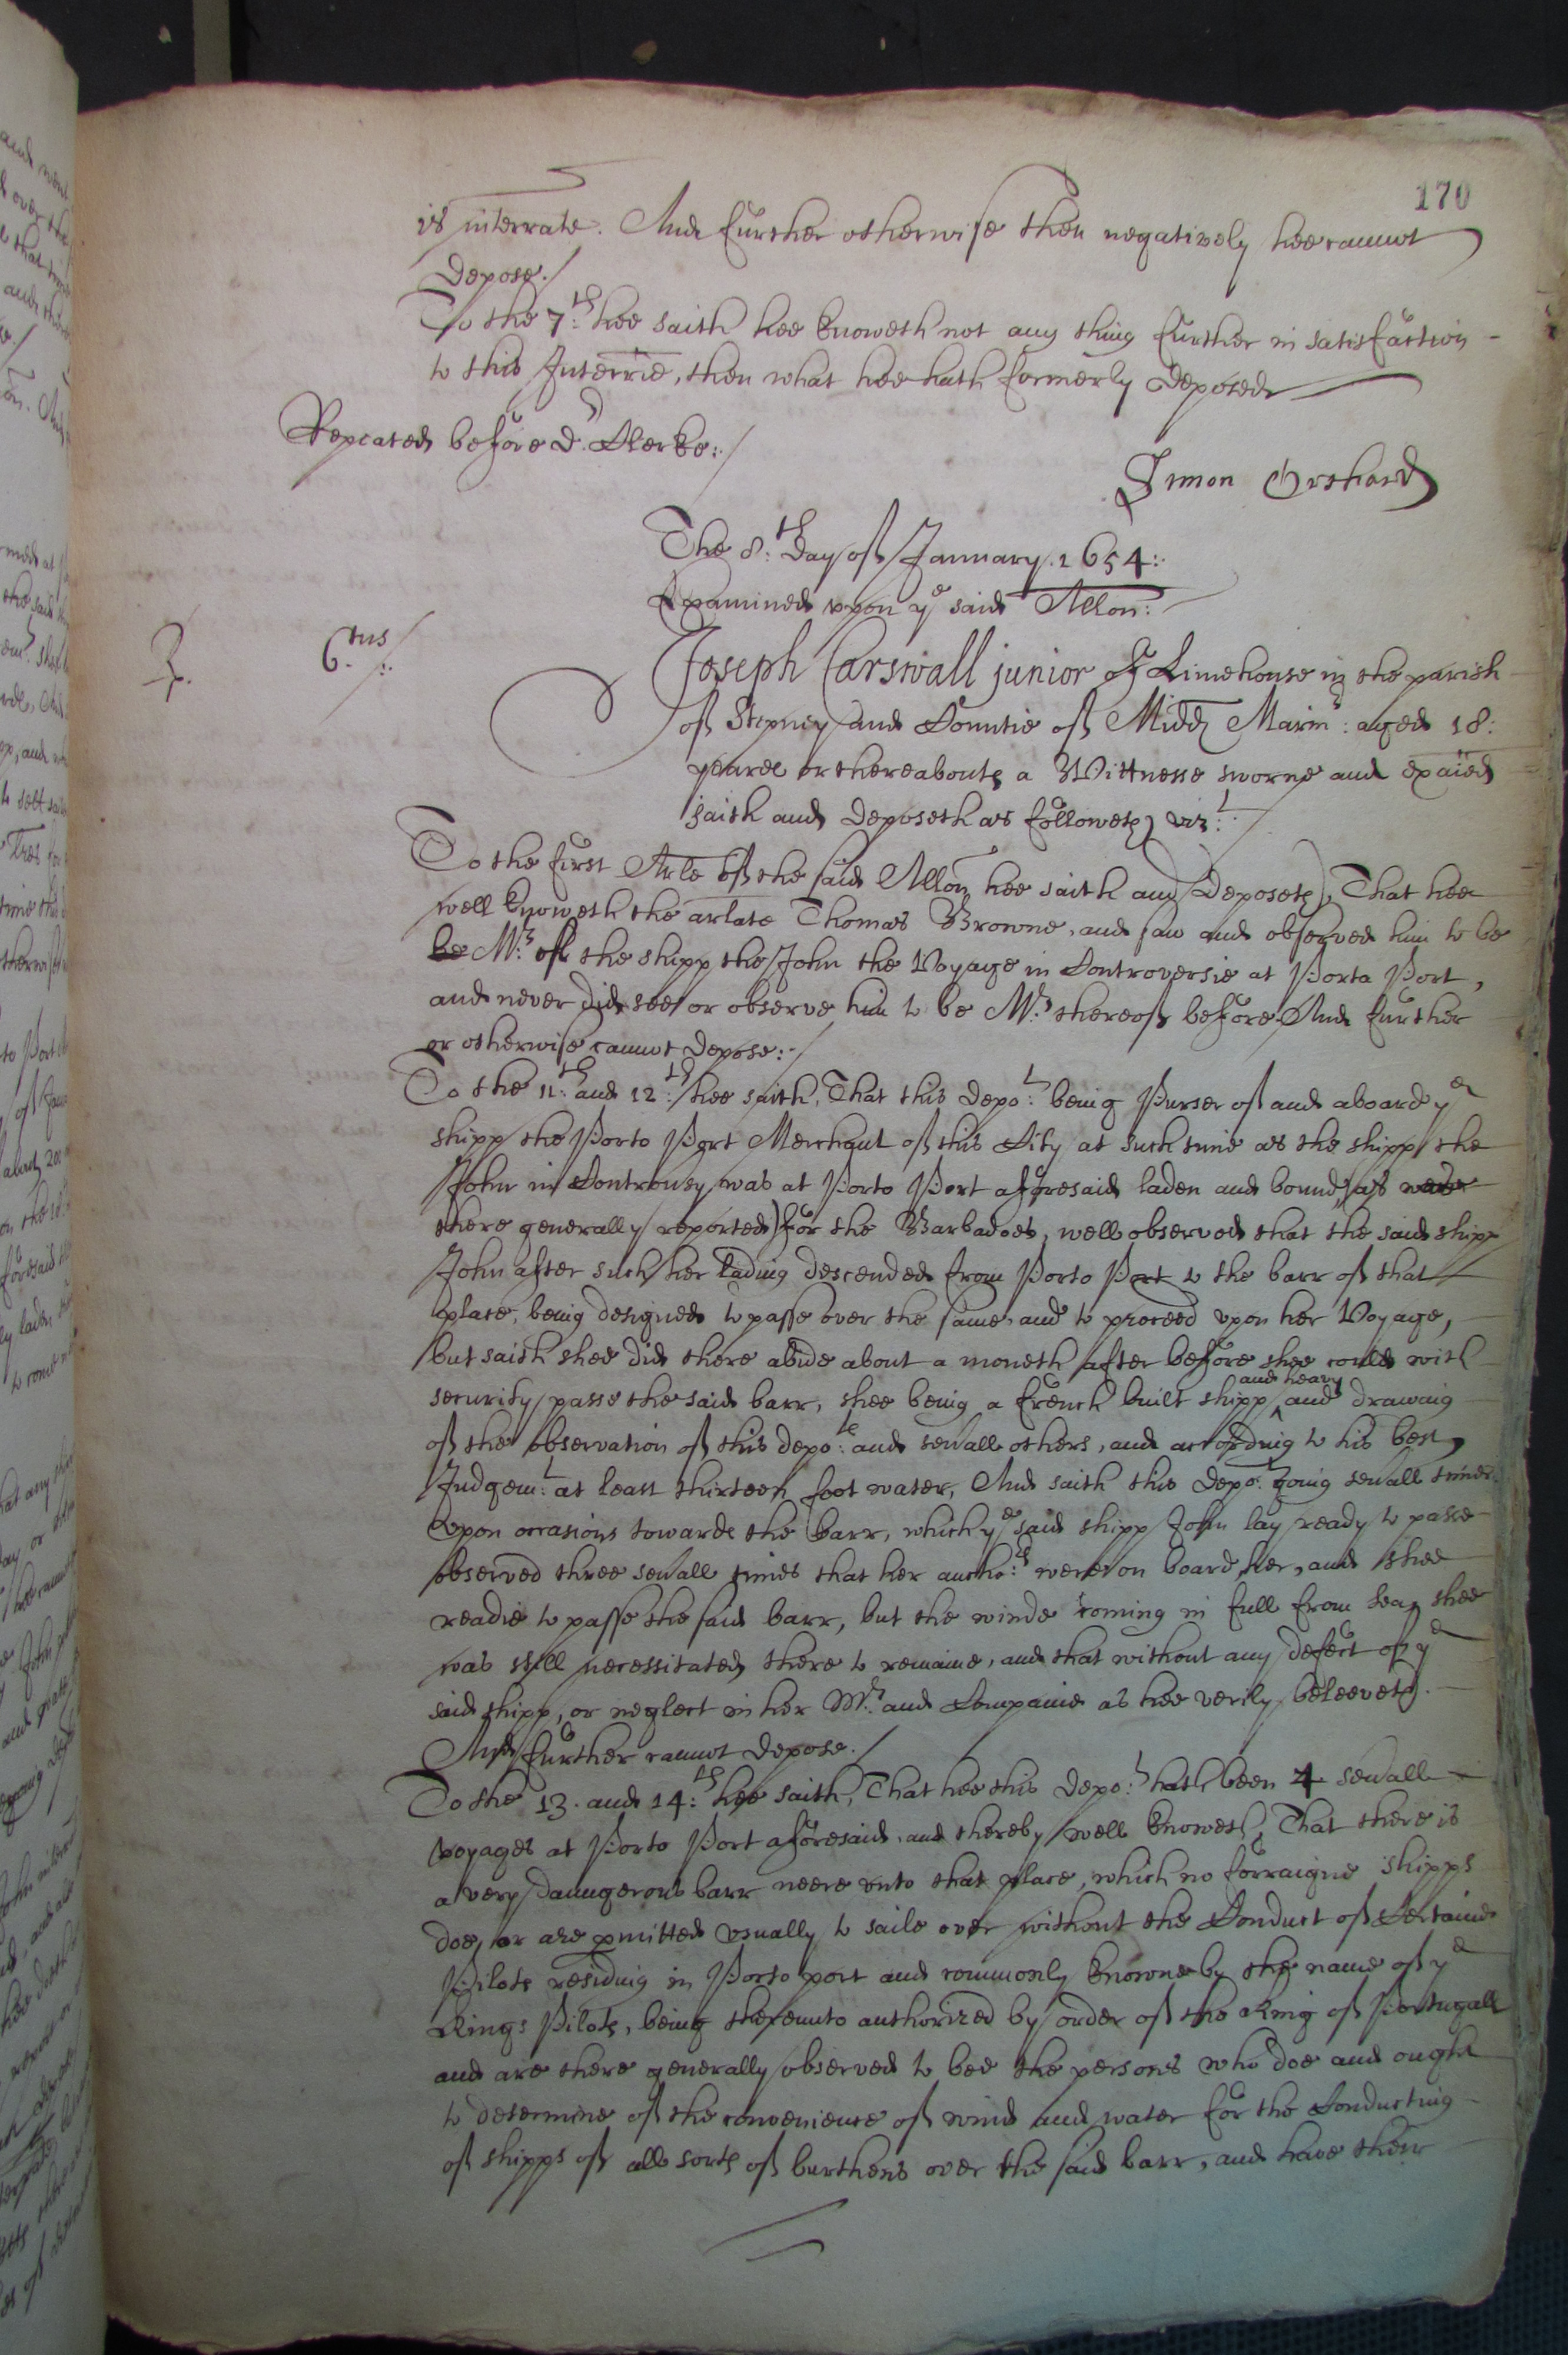 170
is interrate. And further otherwise then negatively hee cannot
depose./
To the 7:th hee saith hee knoweth not any thing further in satisfaction
to this Interrie, then what hee hath formerly deposed
Repeated before Dr. Clerke:/
Simon Orchard
The 8:th day of January. 1654:
Examined upon ye said Allon:
6.tus/:
Joseph Carswall junior of Limehouse in the parish
of Stepney and Countie of Midd Marinr: aged 18:
yeares or thereabouts a Wittnesse sworne and exaied
saith and deposeth as followeth vizt:
To the first Arle of the said Allon hee saith and deposeth, That hee
well knoweth the arlate Thomas Browne, and saw and observed him to be
be Mr: of the shipp the John the Voyage in Controversie at Porta Port,
and never did see or observe him to be Mr: thereof before. And further
or otherwise cannot depose:/
To the 11:th and 12:th hee saith, That this depot: being Purser of and aboard ye
shipp the Porto Port Merchant of this City at such time as the shipp the
John in Controversy was at Porto Port aforesaid laden and bound (as was
there generally reported) for the Barbadoes, well observed that the said shipp
John after such her lading descended from Porto Port to the barr of that
place, being designed to passe over the same, and to proceed upon her Voyage,
but saith shee did there abide about a moneth after before shee could with
security passe the said barr, shee being a french built shipp and drawing
and heavy
of the observation of this depot: and seuall others, and according to his best
Judgemt: at least thirteen foot water, And saith this depot: going seuall times
upon occasions towards the barr, which ye said shipp John lay ready to passe
observed three seuall times that her anchors: were on board her, and shee
readie to passe the said barr, but the winde coming in full from sea, shee
was still necessitated there to remaine, and that without any defect of ye
said shipp, or neglect in her Mr: and Companie as hee verily beleeveth.
And further cannot depose./
To the 13. and 14:th hee saith, That hee this depot: hath been 4 seuall
voyages at Porto Port aforesaid, and thereby well knoweth, That there is
a very daungerous barr neere unto that place, which no forraigne shipps
doe, or are pmitted usually to saile over without the Conduct of Certaine
Pilots residing in Porto port and commonly knowne by the name of ye
Kings Pilots, being thereunto authorized by order of the King of Portugall
and are there generally observed to bee the persons who doe and ought
to determine of the convenience of wind and water for the Conducting
of shipps of all sorts of burthens over the said barr, and have their